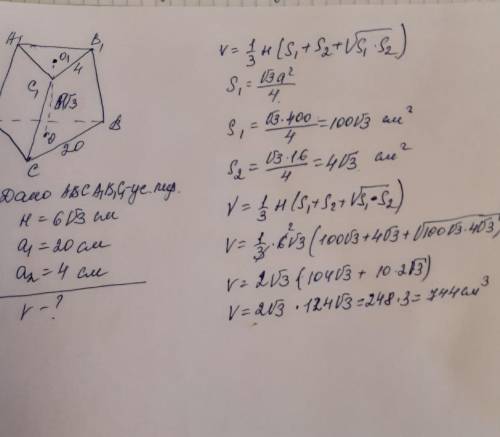 A₁
B₁
O₁
4
C₁
6√3
O
B
20
C
Дано ABCA₁B₁C₁-ус. пир.
H = 6√3 см
a₁ = 20 см
a₂ = 4 см
V - ?
V = 1/3 H (S₁ + S₂ + √(S₁ · S₂))
S₁ = √3a²/4
S₁ = √3·400/4 = 100√3 см²
S₂ = √3·16/4 = 4√3 см²
V = 1/3 H (S₁ + S₂ + √(S₁·S₂))
V = 1/3 · 6² √3 (100√3 + 4√3 + √(100√3 · 4√3))
V = 2√3 (104√3 + 10·2√3)
V = 2√3 · 124√3 = 248·3 = 744 см³